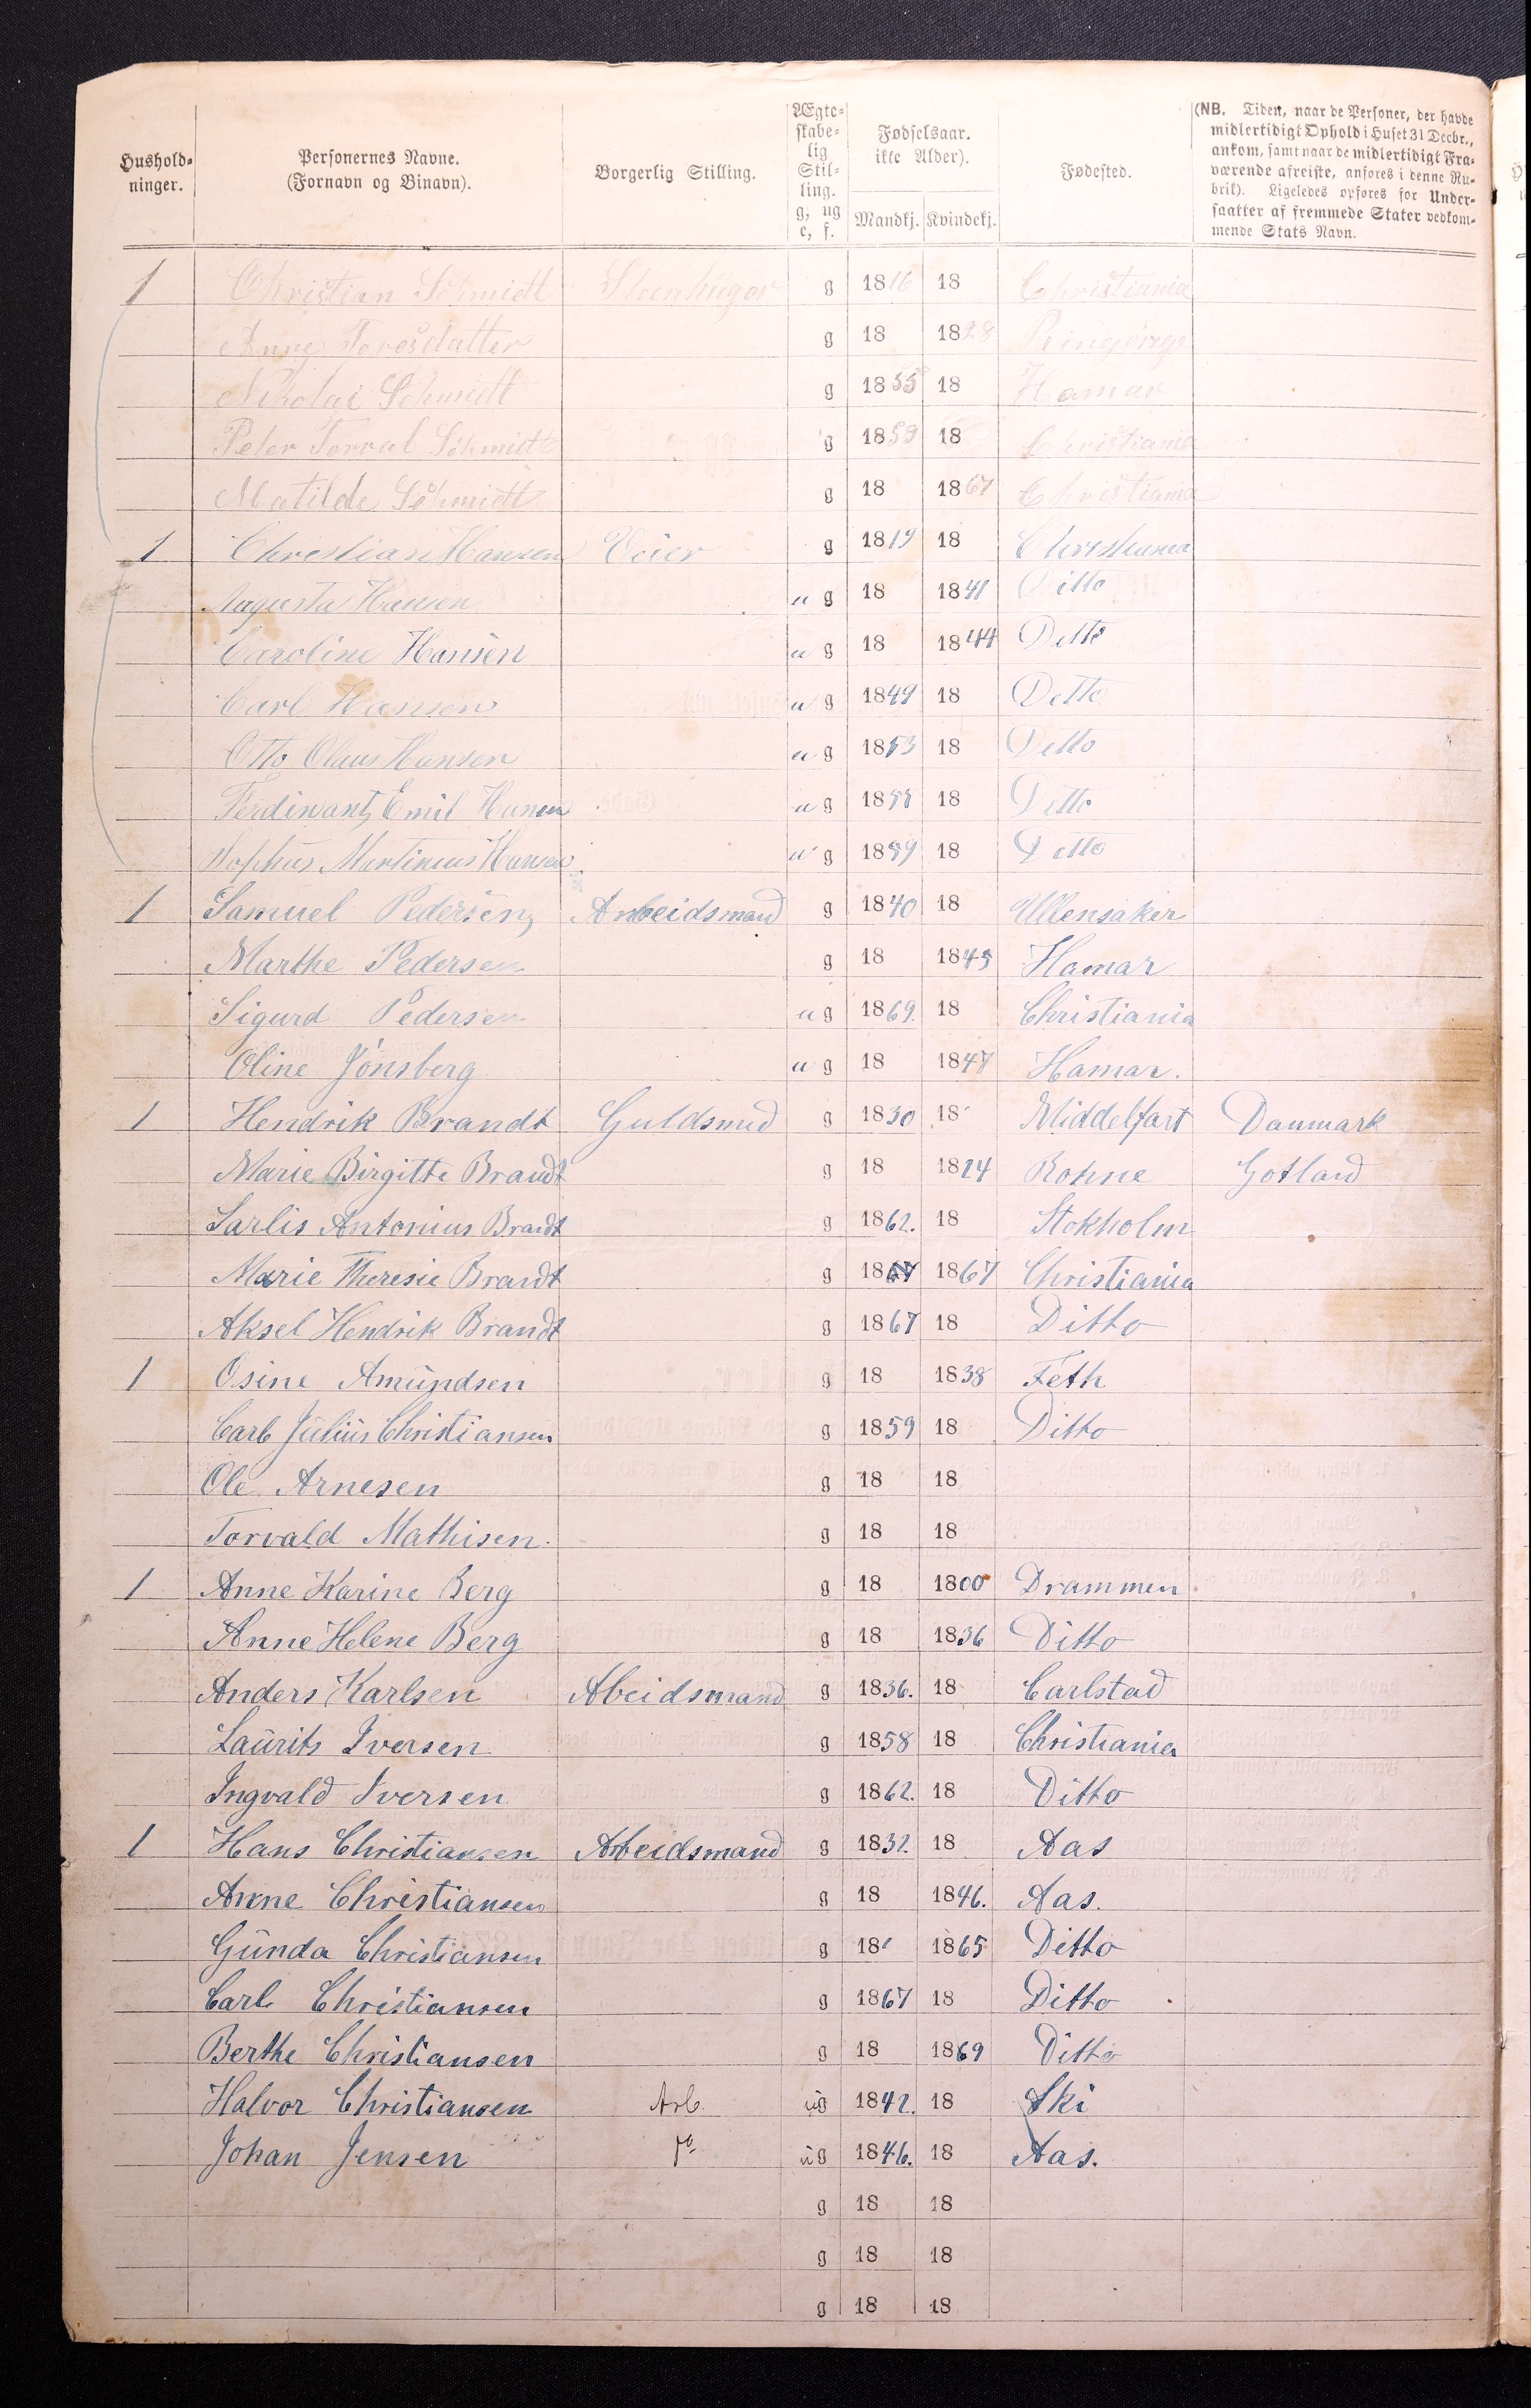 Hushold-
ninger.
Personernes Navne.
(Fornavn og Binavn).
Borgerlig Stilling.
Ægte-
skabe-
lig
Stil-
ling.
g, ug
e, f.
Fødselsaar.
ikke Alder).
Mandkj. Kvindekj.
Fødested.
(NB. Tiden, naar de Personer, der havde
midlertidigt Ophold i Huset 31 Decbr.,
ankom, samt naar de midlertidigt Fra-
værende afreiste, anføres i denne Ru-
brik). Ligeledes opføres for Under-
saatter af fremmede Stater vedkom-
mende Stats Navn.
1 Christian Schmidt Steenhuger g 1816 18 Christiania
Anne Toresdatter g 18 1828
Nikolai Schmidt g 1855 18 Hamar
Peter Torval Schmidt g 1859 18 Christiania
Matilde Schmidt g 18 1867 Christiania
1 Christian Hansen Veier g 1819 18 Christiania
Augusta Hansen u g 18 1841 Ditto
Caroline Hansen u g 18 1844 Ditto
Carl Hansen u g 1849 18 Ditto
Otto Claus Hansen u g 1853 18 Ditto
Ferdinant Emil Hansen u g 18 18 Ditto
Sophus Martinius Hansen u g 1859 18 Ditto
1 Samuel Pedersen Arbeidsmand g 1840 18 Ullensaker
Marthe Pedersen g 18 1845 Hamar
Sigurd Pedersen u g 1869. 18 Christiania
Oline Jönsberg u g 18 1847 Hamar.
1 Hendrik Brandt Guldsmed g 1830 18 Middelfart Danmark
Marie Birgitte Brandt g 18 1824 Rohne Gotland
Sarlis Antonius Brandt g 1862. 18 Stokholm
Marie Theresie Brandt g 1867 1867 Christiania
Aksel Hendrik Brandt g 1867 18 Ditto
1 Osine Amundsen g 18 1838 Feth
Carl Julius Christiansen g 1859 18 Ditto
Ole Arnesen g 18 18
Torvald Mathisen. g 18 18
1 Anne Karine Berg g 18 1800 Drammen
Anne Helene Berg g 18 1836 Ditto
Anders Karlsen Abeidsmand g 1836. 18 Carlstad
Laurits Iversen g 1858 18 Christiania
Ingvald Iversen g 1862. 18 Ditto
1 Hans Christiansen Arbeidsmand g 1832. 18 Aas
Anne Christiansen g 18 1846. Aas.
Gunda Christiansen g 18 1865 Ditto
Carl Christiansen g 1867 18 Ditto
Berthe Christiansen g 18 1869 Ditto
Halvor Christiansen Arb. ug 1842. 18 Ski
Johan Jensen ug 1846. 18 Aas.
g 18 18
g 18 18
g 18 18